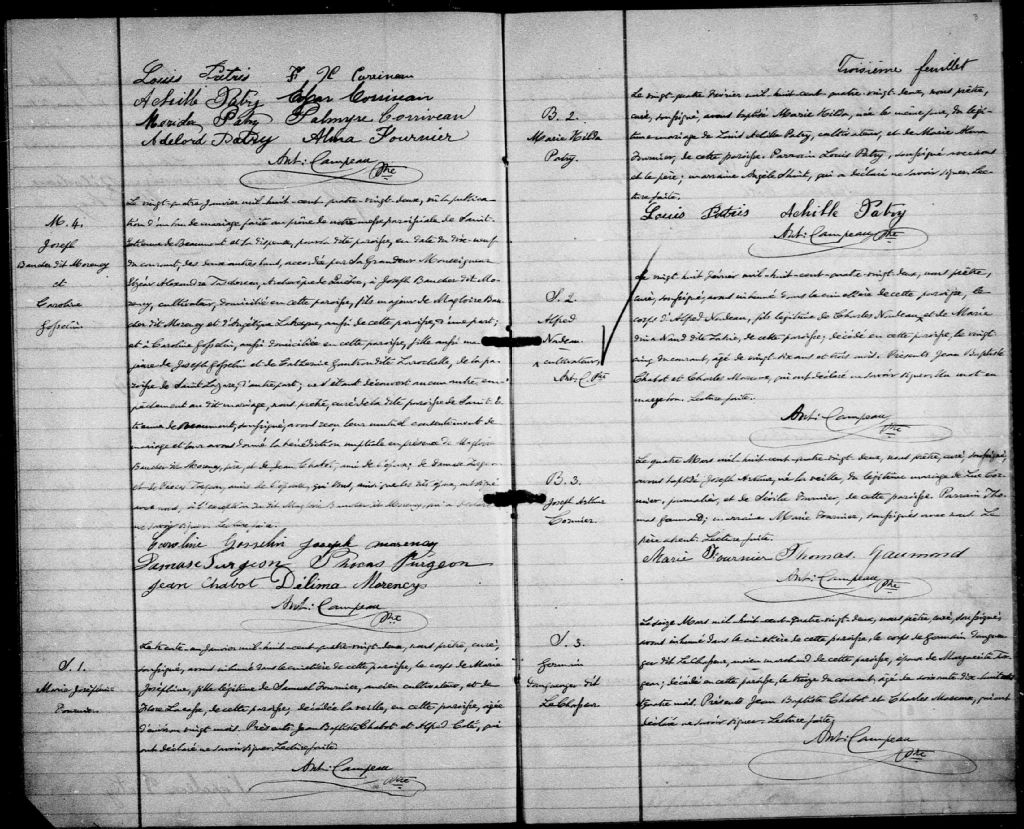 Louis Patris F X Corriveau
Achille Patry Edgar Corriveau
Patry Palmyre Corriveau
Adelord Patry Alma Fournier
Ant: Campeau
Ptre
M. 4.
Joseph
Baucher dit Morency
et
Caroline
Gosselin
Le vingt-quatre Janvier mil-huit-cent-quatre-vingt-deux, vu la publica-
tion d'un ban de mariage faite au prône de notre messe paroissiale de Saint-
Etienne de Beaumont et la dispense, pour la dite paroisse, en date du dix-neuf
du courant, des deux autres bans, accordée par Sa Grandeur Monseigneur
Elzéar Alexandre Taschereau, Archevêque de Québec, à Joseph Baucher dit Mo-
rency, cultivateur, domicilié en cette paroisse, fils majeur de Magloire Bau-
cher dit Morency et d'Angélique Lacasse, aussi de cette paroisse, d'une part;
et à Caroline Gosselin, aussi domiciliée en cette paroisse, fille aussi ma-
jeure de Joseph Gosselin et de Catherine Gautron dite Larochelle, de la pa-
roisse de Saint-Lazare, d'autre part; ne s'étant découvert aucun autre em-
pêchement au dit mariage, nous prêtre, curé de la dite paroisse de Saint-E-
tienne de Beaumont, soussigné, avons reçu leur mutuel consentement de
mariage et leur avons donné la bénédiction nuptiale en présence de Magloire
Baucher dit Morency, père, et de Jean Chabot, ami de l'époux; de Damase Turgeon
et de Phocas Turgeon, amis de l'épouse, qui tous, ainsi que les dits époux, ont signé
avec nous, à l'exception du dit Magloire Baucher dit Morency, qui a déclaré
ne savoir signer. Lecture faite.
Caroline Gosselin Joseph Morency
Damase Turgeon Phocas Turgeon
Jean Chabot Délima Morency
Ant: Campeau
Ptre
S. 1.
Marie Joséphine
Fournier.
Le trente-un Janvier mil-huit-cent-quatre-vingt-deux, nous prêtre, curé,
soussigné, avons inhumé dans le cimetière de cette paroisse, le corps de Marie
Joséphine, fille légitime de Samuel Fournier, ancien cultivateur, et de
Flore Lacasse, de cette paroisse; décédée la veille, en cette paroisse, âgée
d'environ vingt mois. Présents Jean Baptiste Chabot et Alfred Coté, qui
ont déclaré ne savoir signer. Lecture faite.
Ant: Campeau
Ptre
Troisième feuillet
B. 2.
Marie Hilda
Patry.
Le vingt-quatre Février mil-huit-cent-quatre-vingt-deux, nous prêtre,
curé, soussigné, avons baptisé Marie Hilda, née le même jour, du légi-
time mariage de Louis Achille Patry, cultivateur, et de Marie Alma
Fournier, de cette paroisse. Parrain Louis Patry, soussigné avec nous
et le père; marraine Angèle qui a déclaré ne savoir signer. Lec-
ture faite.
Louis Patris Achille Patry
Ant: Campeau Ptre
S. 2.
Alfred
Nadeau.
cultivateur
Ant. C. Ptre
Le vingt-huit Février mil-huit-cent-quatre-vingt-deux, nous prêtre,
curé, soussigné, avons inhumé dans le cimetière de cette paroisse, le
corps d'Alfred Nadeau, fils légitime de Charles Nadeau, et de Marie
dite Labrie, de cette paroisse; décédé en cette paroisse, le vingt-
cinq du courant, âgé de vingt-six ans et trois mois. Présents Jean Baptiste
Chabot et Charles qui ont déclaré ne savoir signer. Un mot en
marge bon. Lecture faite.
Ant: Campeau
Ptre
B. 3.
Joseph Arthur
Cormier.
Le quatre Mars mil-huit-cent-quatre-vingt-deux, nous prêtre, curé, soussigné,
avons baptisé Joseph Arthur, né la veille, du légitime mariage de Luc Cor-
mier, journalier, et de Sévile Fournier, de cette paroisse. Parrain Tho-
mas Gaumond; marraine Marie Fournier, soussignés avec nous. Le
père absent. Lecture faite.
Marie Fournier Thomas Gaumond
Ant: Campeau
Ptre
S. 3.
Germain
dit
LeChasseur
Le seize Mars mil-huit-cent-quatre-vingt-deux, nous prêtre, curé, soussigné,
avons inhumé dans le cimetière de cette paroisse, le corps de Germain
dit LeChasseur, ancien marchand de cette paroisse, époux de Marguerite Tur-
geon; décédé en cette paroisse, le treize du courant, âgé de soixante-dix-huit ans
et quatre mois. Présents Jean Baptiste Chabot et Charles qui ont
déclaré ne savoir signer. Lecture faite.
Ant: Campeau
Ptre